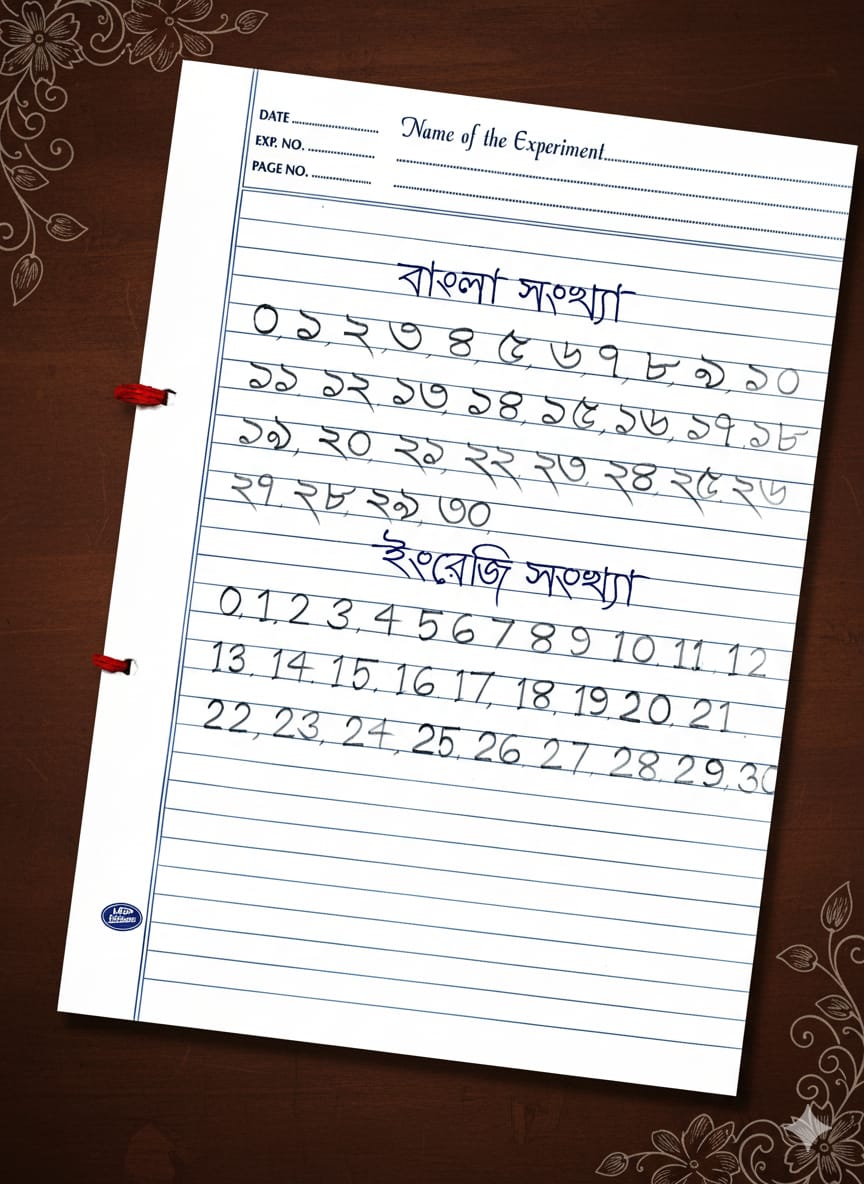 DATE ........................
Name of the Experiment........................
EXP. NO. ........................
PAGE NO. ........................
বাংলা সংখ্যা
০, ১, ২, ৩, ৪, ৫, ৬, ৭, ৮, ৯, ১০
১১, ১২, ১৩, ১৪, ১৫, ১৬, ১৭, ১৮
১৯, ২০, ২১, ২২, ২৩, ২৪, ২৫, ২৬
২৭, ২৮, ২৯, ৩০
ইংরেজি সংখ্যা
0, 1, 2, 3, 4, 5, 6, 7, 8, 9, 10, 11, 12
13, 14, 15, 16, 17, 18, 19, 20, 21
22, 23, 24, 25, 26, 27, 28, 29, 30